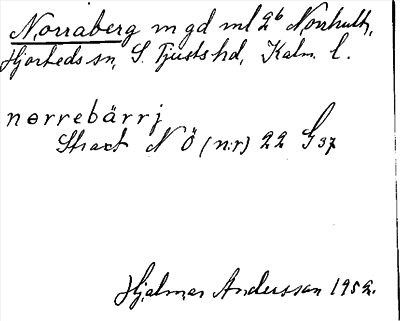 Norraberg m gd ml 2⁶ Norrhult,
Hjorteds sn, S. Tjusts hd, Kalm. l.
nørrebärrj
Straxt N Ö (n:r) 22 G 37
Hjalmar Andersson 1952.